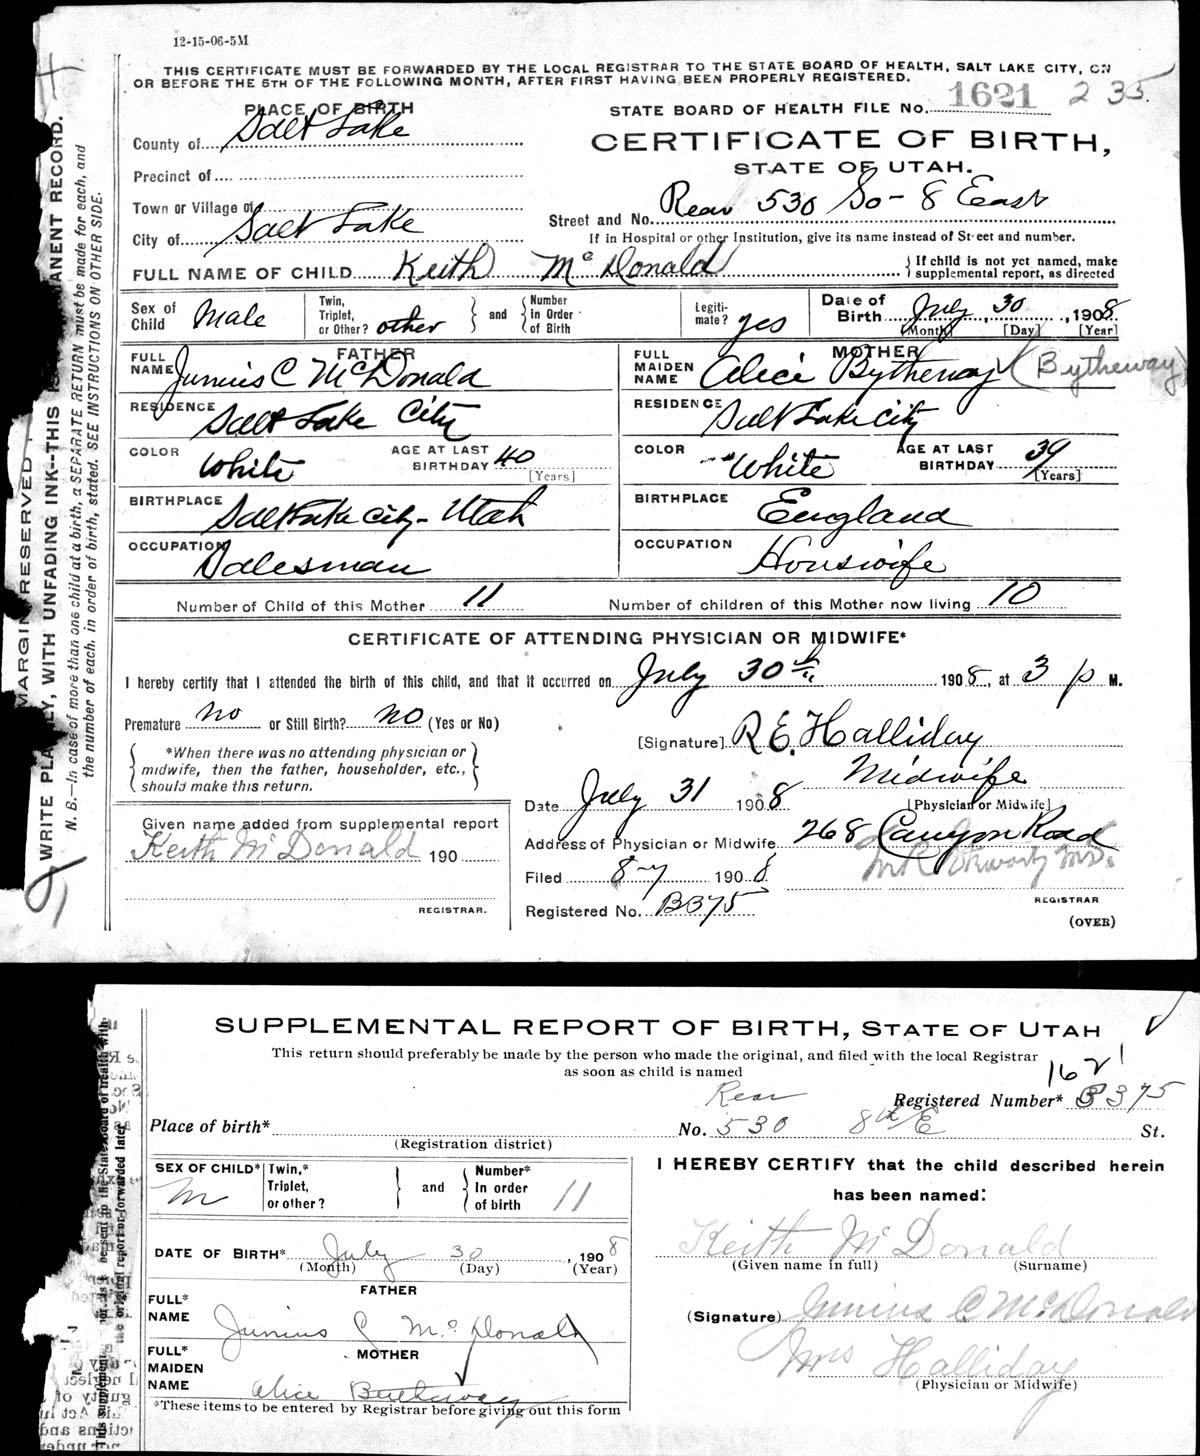 12-15-06-5M
THIS CERTIFICATE MUST BE FORWARDED BY THE LOCAL REGISTRAR TO THE STATE BOARD OF HEALTH, SALT LAKE CITY, ON
OR BEFORE THE 5TH OF THE FOLLOWING MONTH, AFTER FIRST HAVING BEEN PROPERLY REGISTERED.
PLACE OF BIRTH
STATE BOARD OF HEALTH FILE NO. 1621 235
County of Salt Lake
CERTIFICATE OF BIRTH,
STATE OF UTAH.
Precinct of
Town or Village of
Street and No. Rear 530 So - 8 East
City of Salt Lake
If in Hospital or other Institution, give its name instead of Street and number.
FULL NAME OF CHILD Keith McDonald
If child is not yet named, make
supplemental report, as directed
Sex of Child Male
Twin, Triplet, or Other? other
and
Number in Order of Birth
Legiti-mate? yes
Date of Birth July 30, 1908
[Month] [Day] [Year]
FATHER
FULL NAME Junius C McDonald
MOTHER
FULL MAIDEN NAME Alice Bytheway (Bytheway)
RESIDENCE Salt Lake City
RESIDENCE Salt Lake City
COLOR White
AGE AT LAST BIRTHDAY 40 [Years]
COLOR White
AGE AT LAST BIRTHDAY 39 [Years]
BIRTHPLACE Salt Lake City - Utah
BIRTHPLACE England
OCCUPATION Salesman
OCCUPATION Houswife
Number of Child of this Mother 11
Number of children of this Mother now living 10
CERTIFICATE OF ATTENDING PHYSICIAN OR MIDWIFE*
I hereby certify that I attended the birth of this child, and that it occurred on July 30th 1908, at 3 p M.
Premature no or Still Birth? no (Yes or No)
[Signature] R E. Halliday
*When there was no attending physician or
midwife, then the father, householder, etc.,
should make this return.
Midwife
Date July 31 1908
[Physician or Midwife]
Given name added from supplemental report
Keith McDonald 190
REGISTRAR.
Address of Physician or Midwife 268 Canyon Road
Filed 8-7 1908
Registered No. B375
REGISTRAR
(OVER)
MARGIN RESERVED
WRITE PLAINLY, WITH UNFADING INK--THIS IS A PERMANENT RECORD.
N. B.—In case of more than one child at a birth, a SEPARATE RETURN must be made for each, and
the number of each, in order of birth, stated. SEE INSTRUCTIONS ON OTHER SIDE.
SUPPLEMENTAL REPORT OF BIRTH, STATE OF UTAH
This return should preferably be made by the person who made the original, and filed with the local Registrar
as soon as child is named
1621
Registered Number* B375
Place of birth*
(Registration district)
Rear
No. 530 8th E St.
SEX OF CHILD* M
Twin,* Triplet, or other?
and
Number* In order of birth 11
I HEREBY CERTIFY that the child described herein
has been named:
Keith McDonald
(Given name in full) (Surname)
DATE OF BIRTH* July 30, 1908
(Month) (Day) (Year)
FATHER
FULL* NAME Junius C McDonald
(Signature) Junius C McDonald
Mrs Halliday
(Physician or Midwife)
MOTHER
FULL* MAIDEN NAME Alice Bytheway
*These items to be entered by Registrar before giving out this form